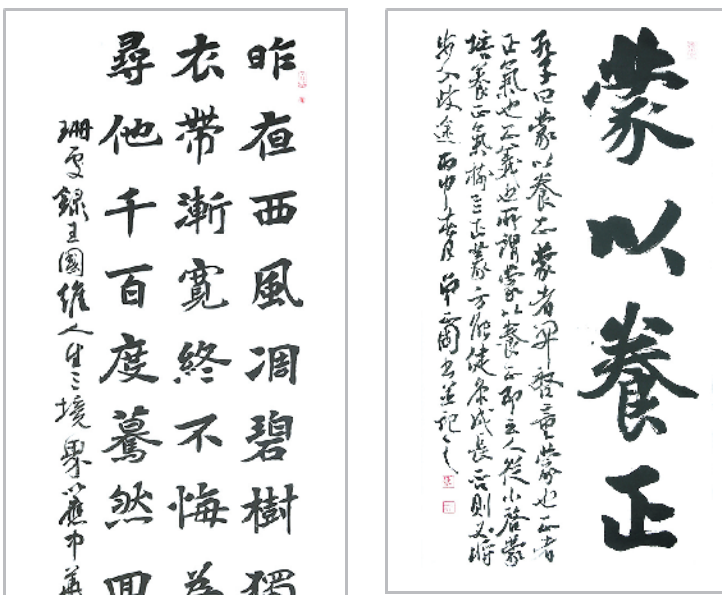 昨夜西風凋碧樹獨
衣帶漸寬終不悔為
尋他千百度驀然回
珊處錄王國維人生三境界以應中華
蒙以養正
孔子曰蒙以養蒙者啓童蒙也正者
正氣也正義也所謂蒙以養正即從小啓蒙
培養正氣樹正方能使成長否則必將
步入歧途丙申春月並記之